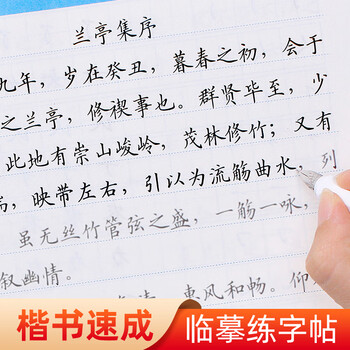 兰亭集序
九年，岁在癸丑，暮春之初，会于
之兰亭，修禊事也。群贤毕至，少
此地有崇山峻岭，茂林修竹；又有
湍，映带左右，引以为流觞曲水，列
虽无丝竹管弦之盛，一觞一咏，
叙幽情。
清，惠风和畅。仰
楷书速成
临摹练字帖